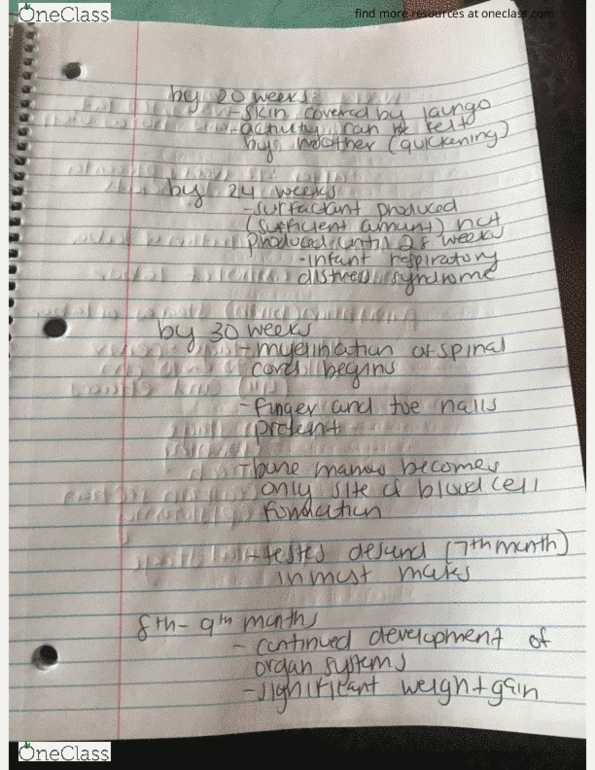 OneClass
find more resources at oneclass.com
by 20 weeks:
- skin covered by laungo
- activity can be felt
by mother (quickening)
by 24 weeks
- surfactant produced
(sufficient amount) not
produced until 28 weeks
- infant respiratory
distress syndrome
by 30 weeks
- myelination of spinal
cord begins
- finger and toe nails
present
- bone marrow becomes
only site of blood cell
formation
- testes desend (7th month)
in most males
8th - 9th month
- continued development of
organ systems
- significant weight gain
OneClass